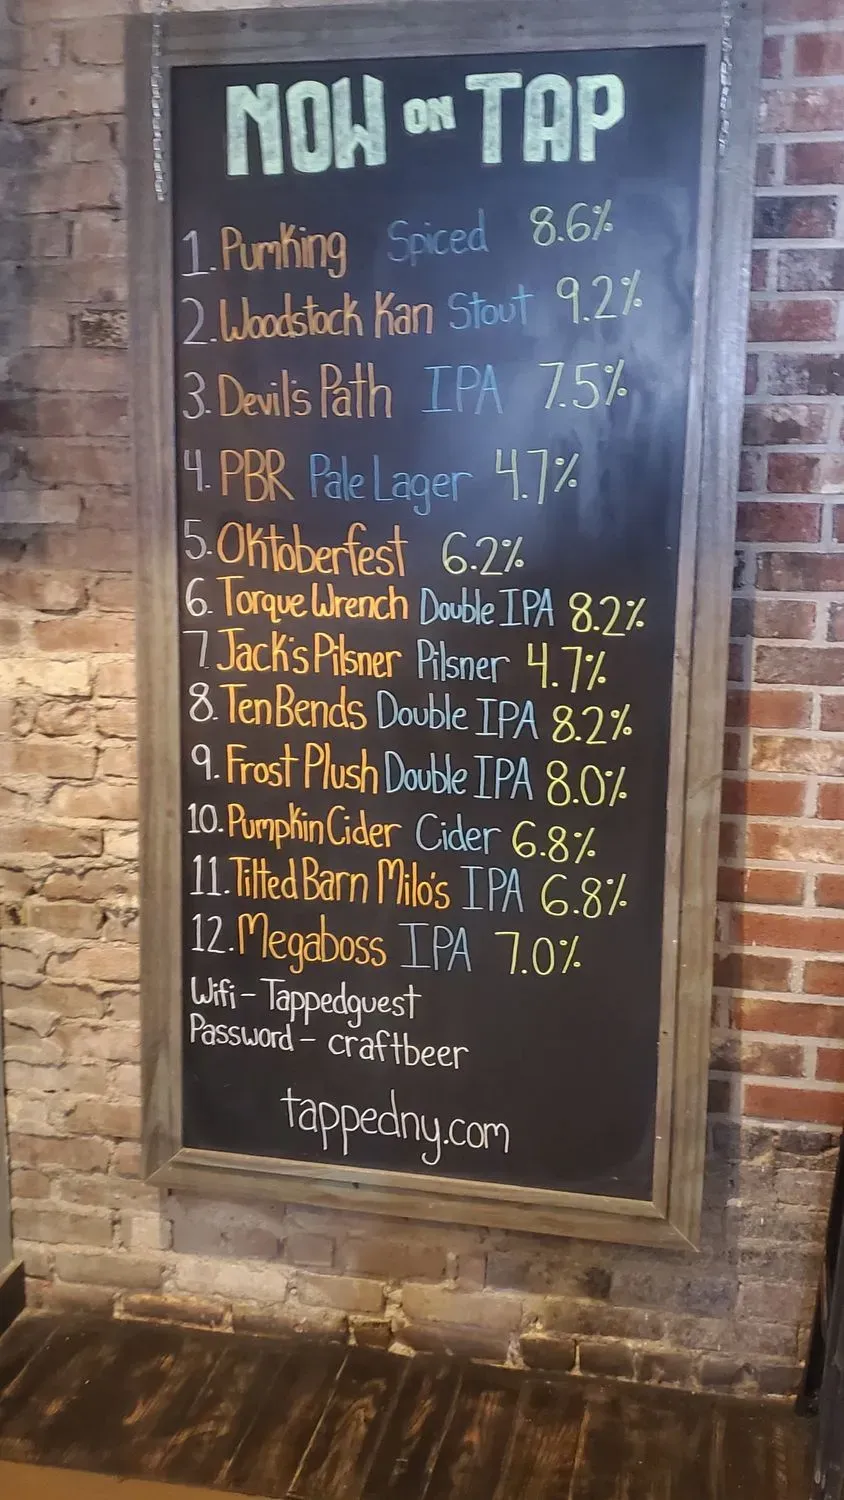 NOW ON TAP
1. Pumking Spiced 8.6%
2. Woodstock Kan Stout 9.2%
3. Devil's Path IPA 7.5%
4. PBR Pale Lager 4.7%
5. Oktoberfest 6.2%
6. Torque Wrench Double IPA 8.2%
7. Jack's Pilsner Pilsner 4.7%
8. Ten Bends Double IPA 8.2%
9. Frost Plush Double IPA 8.0%
10. Pumpkin Cider Cider 6.8%
11. Tilted Barn Milo's IPA 6.8%
12. Megaboss IPA 7.0%
Wifi - Tappedguest
Password - craftbeer
tappedny.com